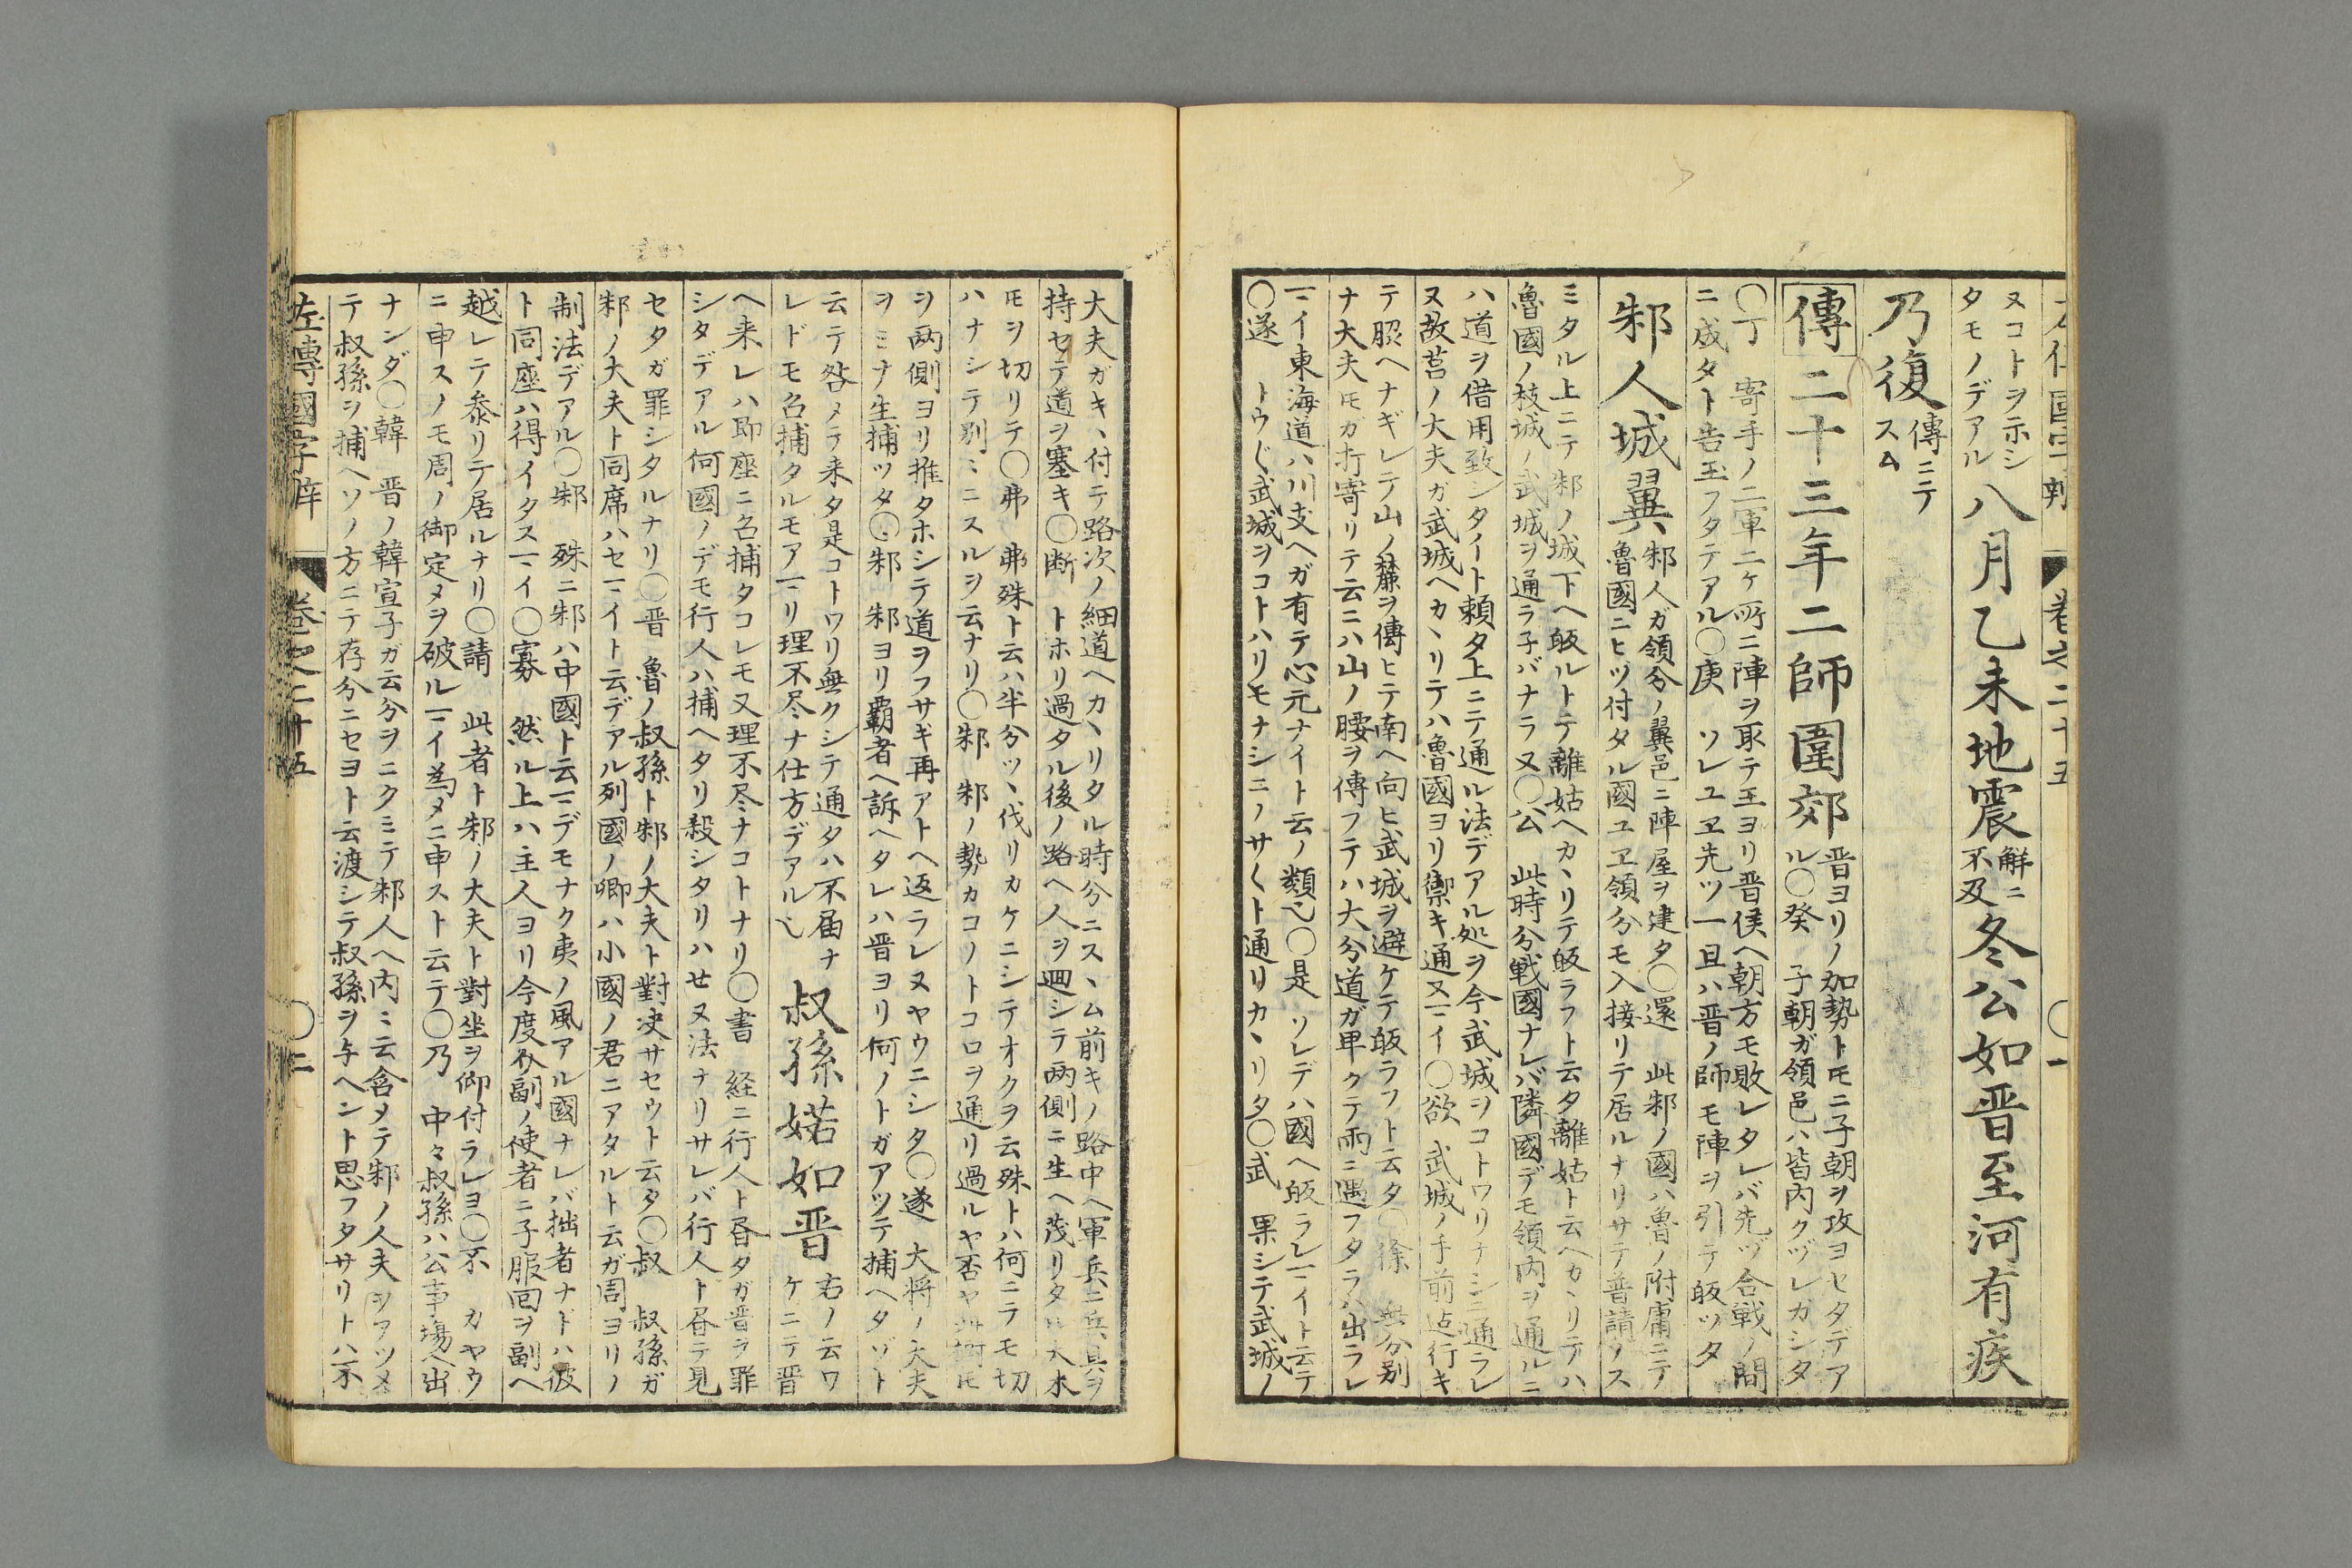 ヌコトヲ示シ
タモノデアル
八月乙未地震
解ニ
不及
冬公如晋至河有疾
乃復
傳ニテ
スム
傳二十三年二師圍郊
晋ヨリノ加勢トモニ子朝ヲ攻ヨセタデア
ル〇癸 子朝ガ領邑ハ皆内クヅレガシタ
〇丁 寄手ノ二軍二ケ所ニ陣ヲ取テ王ヨリ晋侯ヘ朝方モ敗レタレバ先ヅ合戦ノ間
ニ成タト告玉フタテアル〇庚 ソレユヱ先ツ一旦ハ晋ノ師モ陣ヲ引テ皈ツタ
邾人城翼
邾人ガ領分ノ翼邑ニ陣屋ヲ建タ〇還 此邾ノ國ハ魯ノ附庸ニテ
魯國ニヒツ付タル國ユヱ領分モ入接リテ居ルナリサテ普請ノス
ミタル上ニテ邾ノ城下ヘ皈ルトテ離姑ヘカヽリテ皈ラフト云タ離姑ト云ヘカヽリテハ
魯國ノ枝城ノ武城ヲ通ラ子バナラヌ〇公 此時分戦國ナレバ隣國デモ領内ヲ通ルニ
ハ道ヲ借用致シタイト頼タ上ニテ通ル法デアル処ヲ今武城ヲコトワリナシニ通ラレ
ヌ故莒ノ大夫ガ武城ヘカヽリテハ魯國ヨリ禦キ通ヌーイ〇欲 武城ノ手前迠行キ
テ照ヘナギレテ山ノ麓ヲ傳ヒテ南ヘ向ヒ武城ヲ避ケテ皈ラフト云タ〇徐 無分别
ナ大夫モガ打寄リテ云ニハ山ノ腰ヲ傳フテハ大分道ガ卑クテ雨ニ遇フタラハ出ラレ
ーイ東海道ハ川支ヘガ有テ心元ナイト云ノ類也〇是 ソレデハ國ヘ皈ラレーイト云テ
〇遂 トウ〲武城ヲコトハリモナシニノサ〱ト通リカヽリタ〇武 果シテ武城ノ
大夫ガキヽ付テ路次ノ細道ヘカヽリタル時分ニスヽム前キノ路中ヘ軍兵ニ兵具ヲ
持セテ道ヲ塞キ〇断 トホリ過タル後ノ路ヘ人ヲ廻シテ两側ニ生ヘ茂リタル大木
モヲ切リテ〇弗 弗殊ト云ハ半分ツヽ伐リカケニシテオクヲ云殊トハ何ニラモ切
ハナシテ别〻ニスルヲ云ナリ〇邾 邾ノ勢カコノトコロヲ通リ過ルヤ否ヤ
ヲ两側ヨリ推タホシテ道ヲフサギ再アトヘ返ラレヌヤウニシタ〇遂 大将ノ大夫
ヲミナ生捕ツタ〇邾 邾ヨリ覇者ヘ訴ヘタレハ晋ヨリ何ノトガアツテ捕ヘタゾト
云テ咎メテ来タ是コトワリ無クシテ通タハ不届ナ
レドモ召捕タルモアーリ理不尽ナ仕方デアルヘ
叔孫婼如晋
右ノ云ワ
ケニテ晋
ヘ来レハ即座ニ召捕タコレモ又理不尽ナコトナリ〇書 経ニ行人ト昏タガ晋ラ罪
シタデアル何國ノデモ行人ハ捕ヘタリ殺シタリハせヌ法ナリサレバ行人ト昏テ見
セタガ罪シタルナリ〇晋 魯ノ叔孫ト邾ノ大夫ト對决サセウト云タ〇叔 叔孫ガ
邾ノ大夫ト同席ハセーイト云デアル列國ノ卿ハ小國ノ君ニアタルト云ガ周ヨリノ
制法デアル〇邾 殊ニ邾ハ中國ト云ーデモナク夷ノ風アル國ナレバ拙者ナドハ彼
ト同座ハ得イタスーイ〇寡 然ル上ハ主人ヨリ今度介副ノ使者ニ子服回ヲ副ヘ
越レテ叅リテ居ルナリ〇請 此者ト邾ノ大夫ト對坐ヲ仰付ラレヨ〇不 カヤウ
ニ申スノモ周ノ御定メヲ破ルーイ為メニ申スト云テ〇乃 中々叔孫ハ公事場ヘ出
ナンダ〇韓 晋ノ韓宣子ガ云分ヲニクミテ邾人ヘ内〻云含メテ邾ノ人夫ヲアツメ
テ叔孫ヲ捕ヘソノ方ニテ存分ニセヨト云渡シテ叔孫ヲ与ヘント思フタサリトハ不
左傳國字辨 巻之二十五 〇二